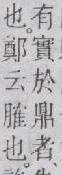 有實於鼎者、
也。鄭云膗也。